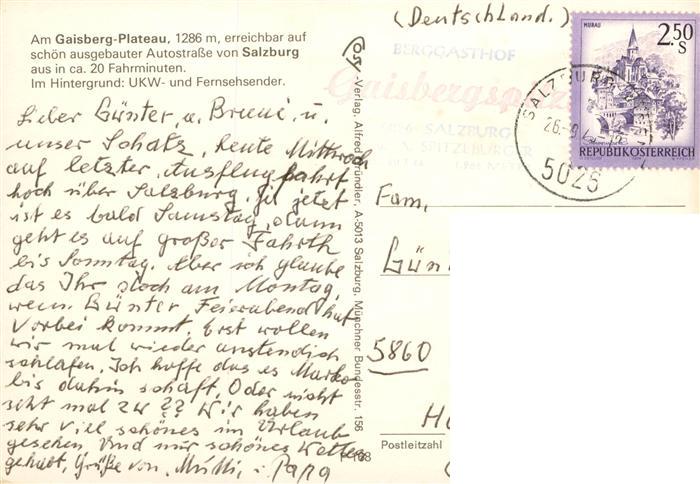 Am Gaisberg-Plateau, 1286 m, erreichbar auf
schön ausgebauter Autostraße von Salzburg
aus in ca. 20 Fahrminuten.
Im Hintergrund: UKW- und Fernsehsender.
Lieber Günter, u. u.
unser Schatz, heute Mittwoch
auf letzter Ausflugfahrt
hoch über Salzburg. Ja jetzt
ist es bald Samstag, dann
geht es auf großer Fahrth
bis Sonntag. Aber ich glaube
das Ihr doch am Montag,
wenn Günter Feierabend hat
Vorbei kommt. Erst wollen
wir mal wieder anstendich
schlafen. Ich hoffe das es Marko
bis dahin schaft. Oder nicht
seht mal zu ?? Wir haben
sehr viel schönes im Urlaub
gesehen Und nur schönes Wetter
gehabt, Grüße von, Mutti, Papa
Cosy-Verlag, Alfred Gründler, A-5013 Salzburg, Münchner Bundesstr. 156
(Deutschland.)
BERGGASTHOF
Gaisbergspitze
SALZBURG
SPITZLBURGER
MURAU
2.50
S
REPUBLIK ÖSTERREICH
SALZBURG
5025
Fam,
Gün
5860
H
Postleitzahl